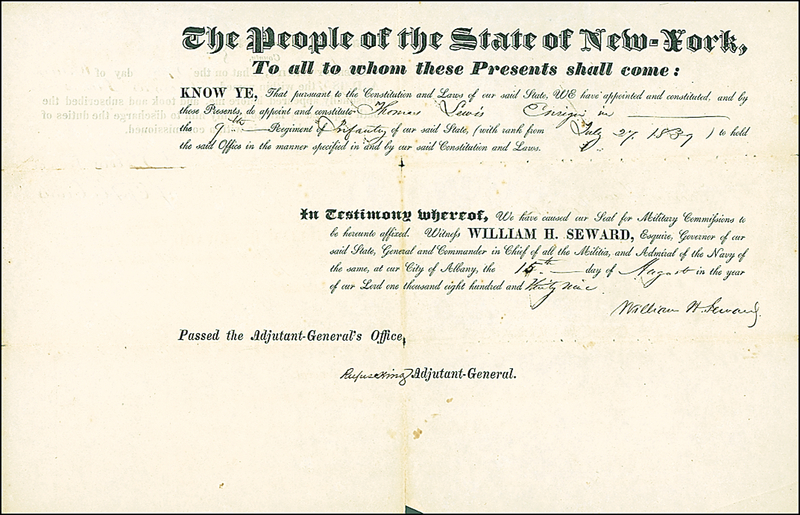 The People of the State of New-York,
To all to whom these Presents shall come:
KNOW YE, That pursuant to the Constitution and Laws of our said State, WE have appointed and constituted, and by
these Presents, do appoint and constitute Thomas Lewis Ensign in
the 9th Regiment of Infantry of our said State, (with rank from July 27. 1839 ) to hold
the said Office in the manner specified in and by our said Constitution and Laws.
In Testimony whereof, We have caused our Seal for Military Commissions to
be hereunto affixed. Witness WILLIAM H. SEWARD, Esquire, Governor of our
said State, General and Commander in Chief of all the Militia, and Admiral of the Navy of
the same, at our City of Albany, the 15th day of August in the year
of our Lord one thousand eight hundred and thirty nine
William H. Seward.
Passed the Adjutant-General's Office,
Rufus King Adjutant-General.